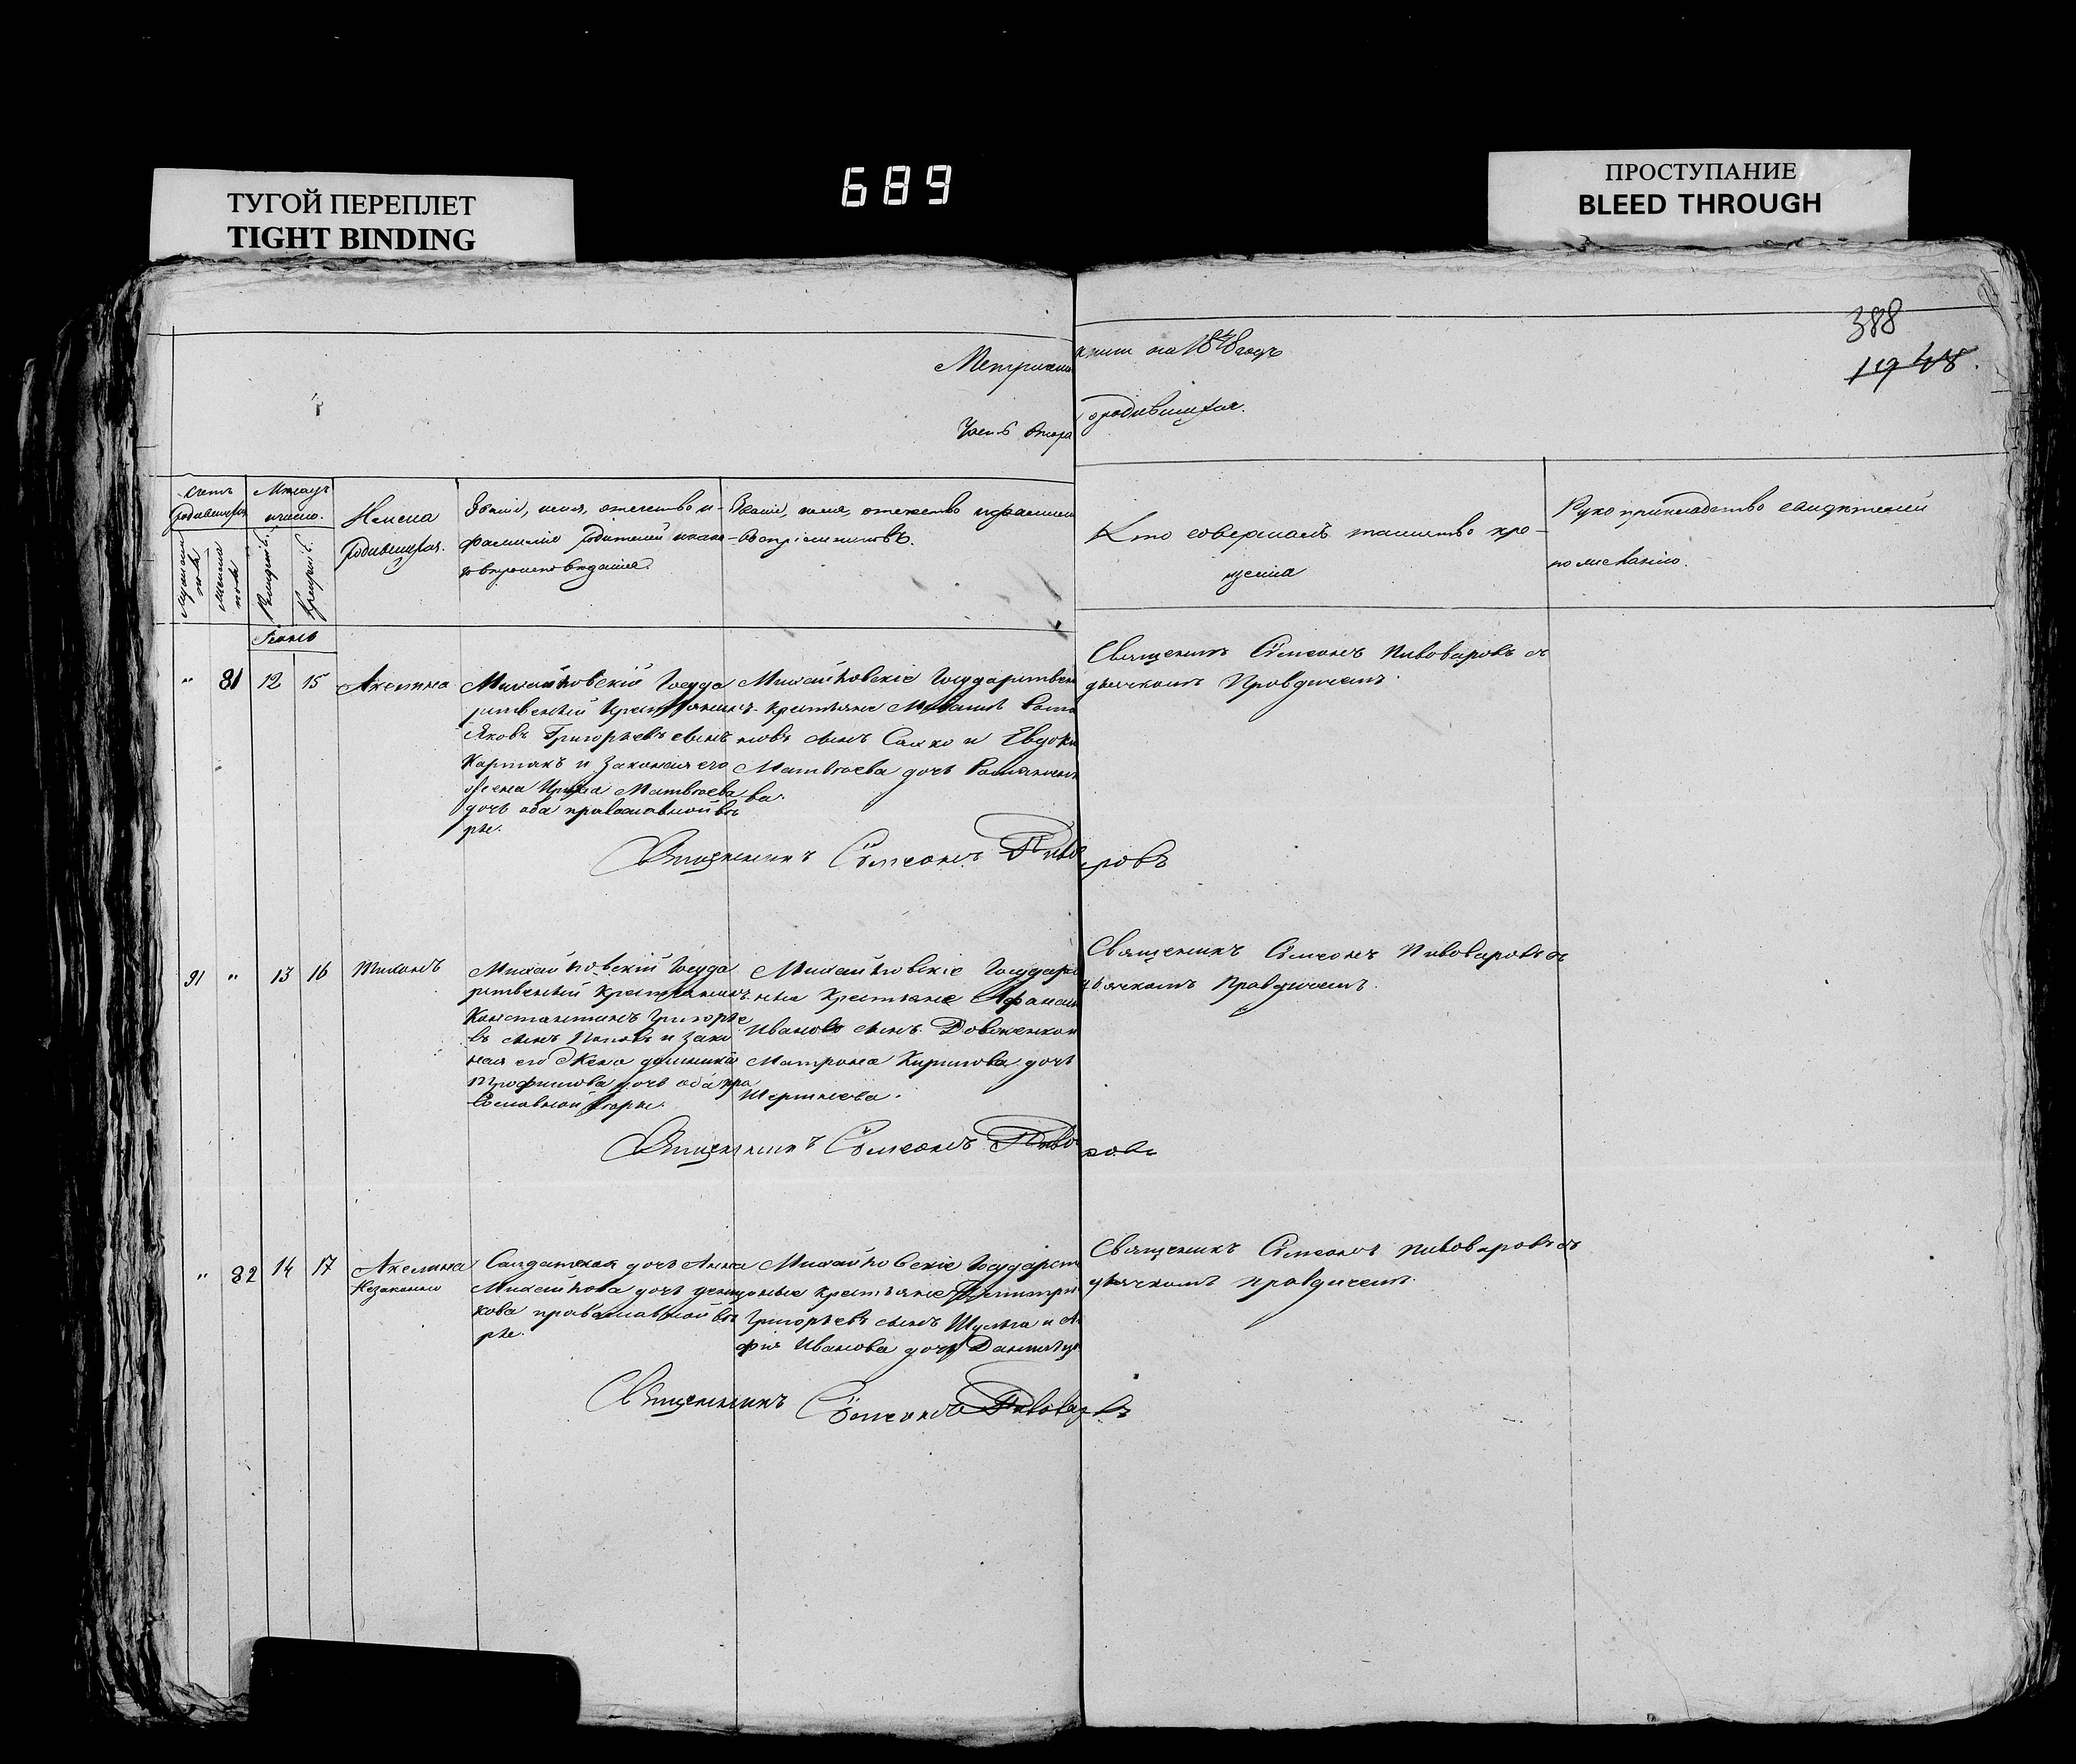 689
ТУГОЙ ПЕРЕПЛЕТ
TIGHT BINDING
ПРОСТУПАНИЕ
BLEED THROUGH
388
1948.
Метрич книги на 1848 годъ
Часть о родившихся.
Счетъ родившихся
Мужеска пола
Женска пола
Мѣсяцъ и число.
Рожденiе.
Крещенiе.
Имена
родившихся.
Званiе, имя, отечество и
фамилiя родителей и како-
го вѣроисповѣданiя.
Званiе, имя, отечество и фамилiя
воспрiемниковъ.
Кто совершалъ таинство кре-
щенiя
Рукоприкладство свидѣтелей
по желанiю.
Iюнь
" 81 12 15 Акелина
Михайловскiй Госуда
рственный Крестьянинъ
Яковъ Григорьевъ сынъ
и Законная его
Жена Матвѣева
дочь оба православной вѣ
ры.
Михайловскiе Государствен
крестьяне
новъ сынъ Сашко и Евдоки
Матвѣева дочь
ва.
Священникъ Симеонъ Пивоваровъ съ
дьячкомъ Правдичемъ.
Священникъ Симеонъ Пиво ровъ
91 " 13 16 Тихонъ
Михайловскiй Госуда
рственный Крестьянинъ
Константинъ Григорье
въ сынъ Поповъ и Зако
ная его Жена
Трофимова дочь оба пра
вославной вѣры.
Михайловскiе Государс
ные Крестьяне Афанас
Ивановъ сынъ Довженко и
Матрона Кирилова дочь
Священникъ Симеонъ Пивоваровъ съ
дьячкомъ Правдичемъ.
Священникъ Симеонъ Пиво ровъ
" 82 14 17 Акелина
Незаконно
Салдатская дочь Анна
Михайлова дочь
кова православной вѣ
ры.
Михайловскiе Государст
ные крестьяне Димитрi
Григорьевъ сынъ Шульга и
фiя Иванова дочь
Священникъ Симеонъ Пивоваровъ съ
дьячкомъ Правдичемъ.
Священникъ Симеонъ Пивовар въ